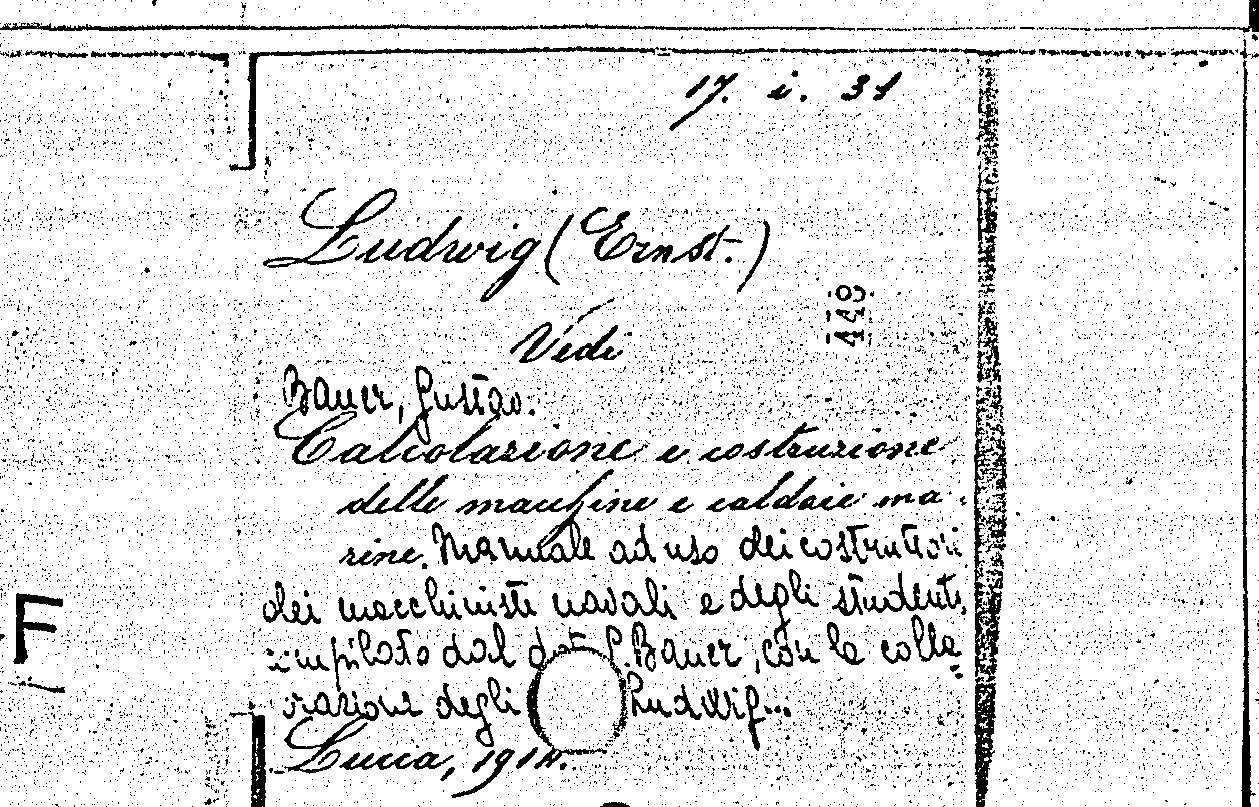 17. i. 31
Ludwig (Ernst.)
448
Vedi
Bauer, Gustav.
Calcolazione e costruzione
delle macchine e caldaie ma-
rine. Manuale ad uso dei costruttori
dei macchinisti navali e degli studenti,
compilato dal dott. G. Bauer, con la colla
razione degli Ludwig...
F
Lucca, 1914.